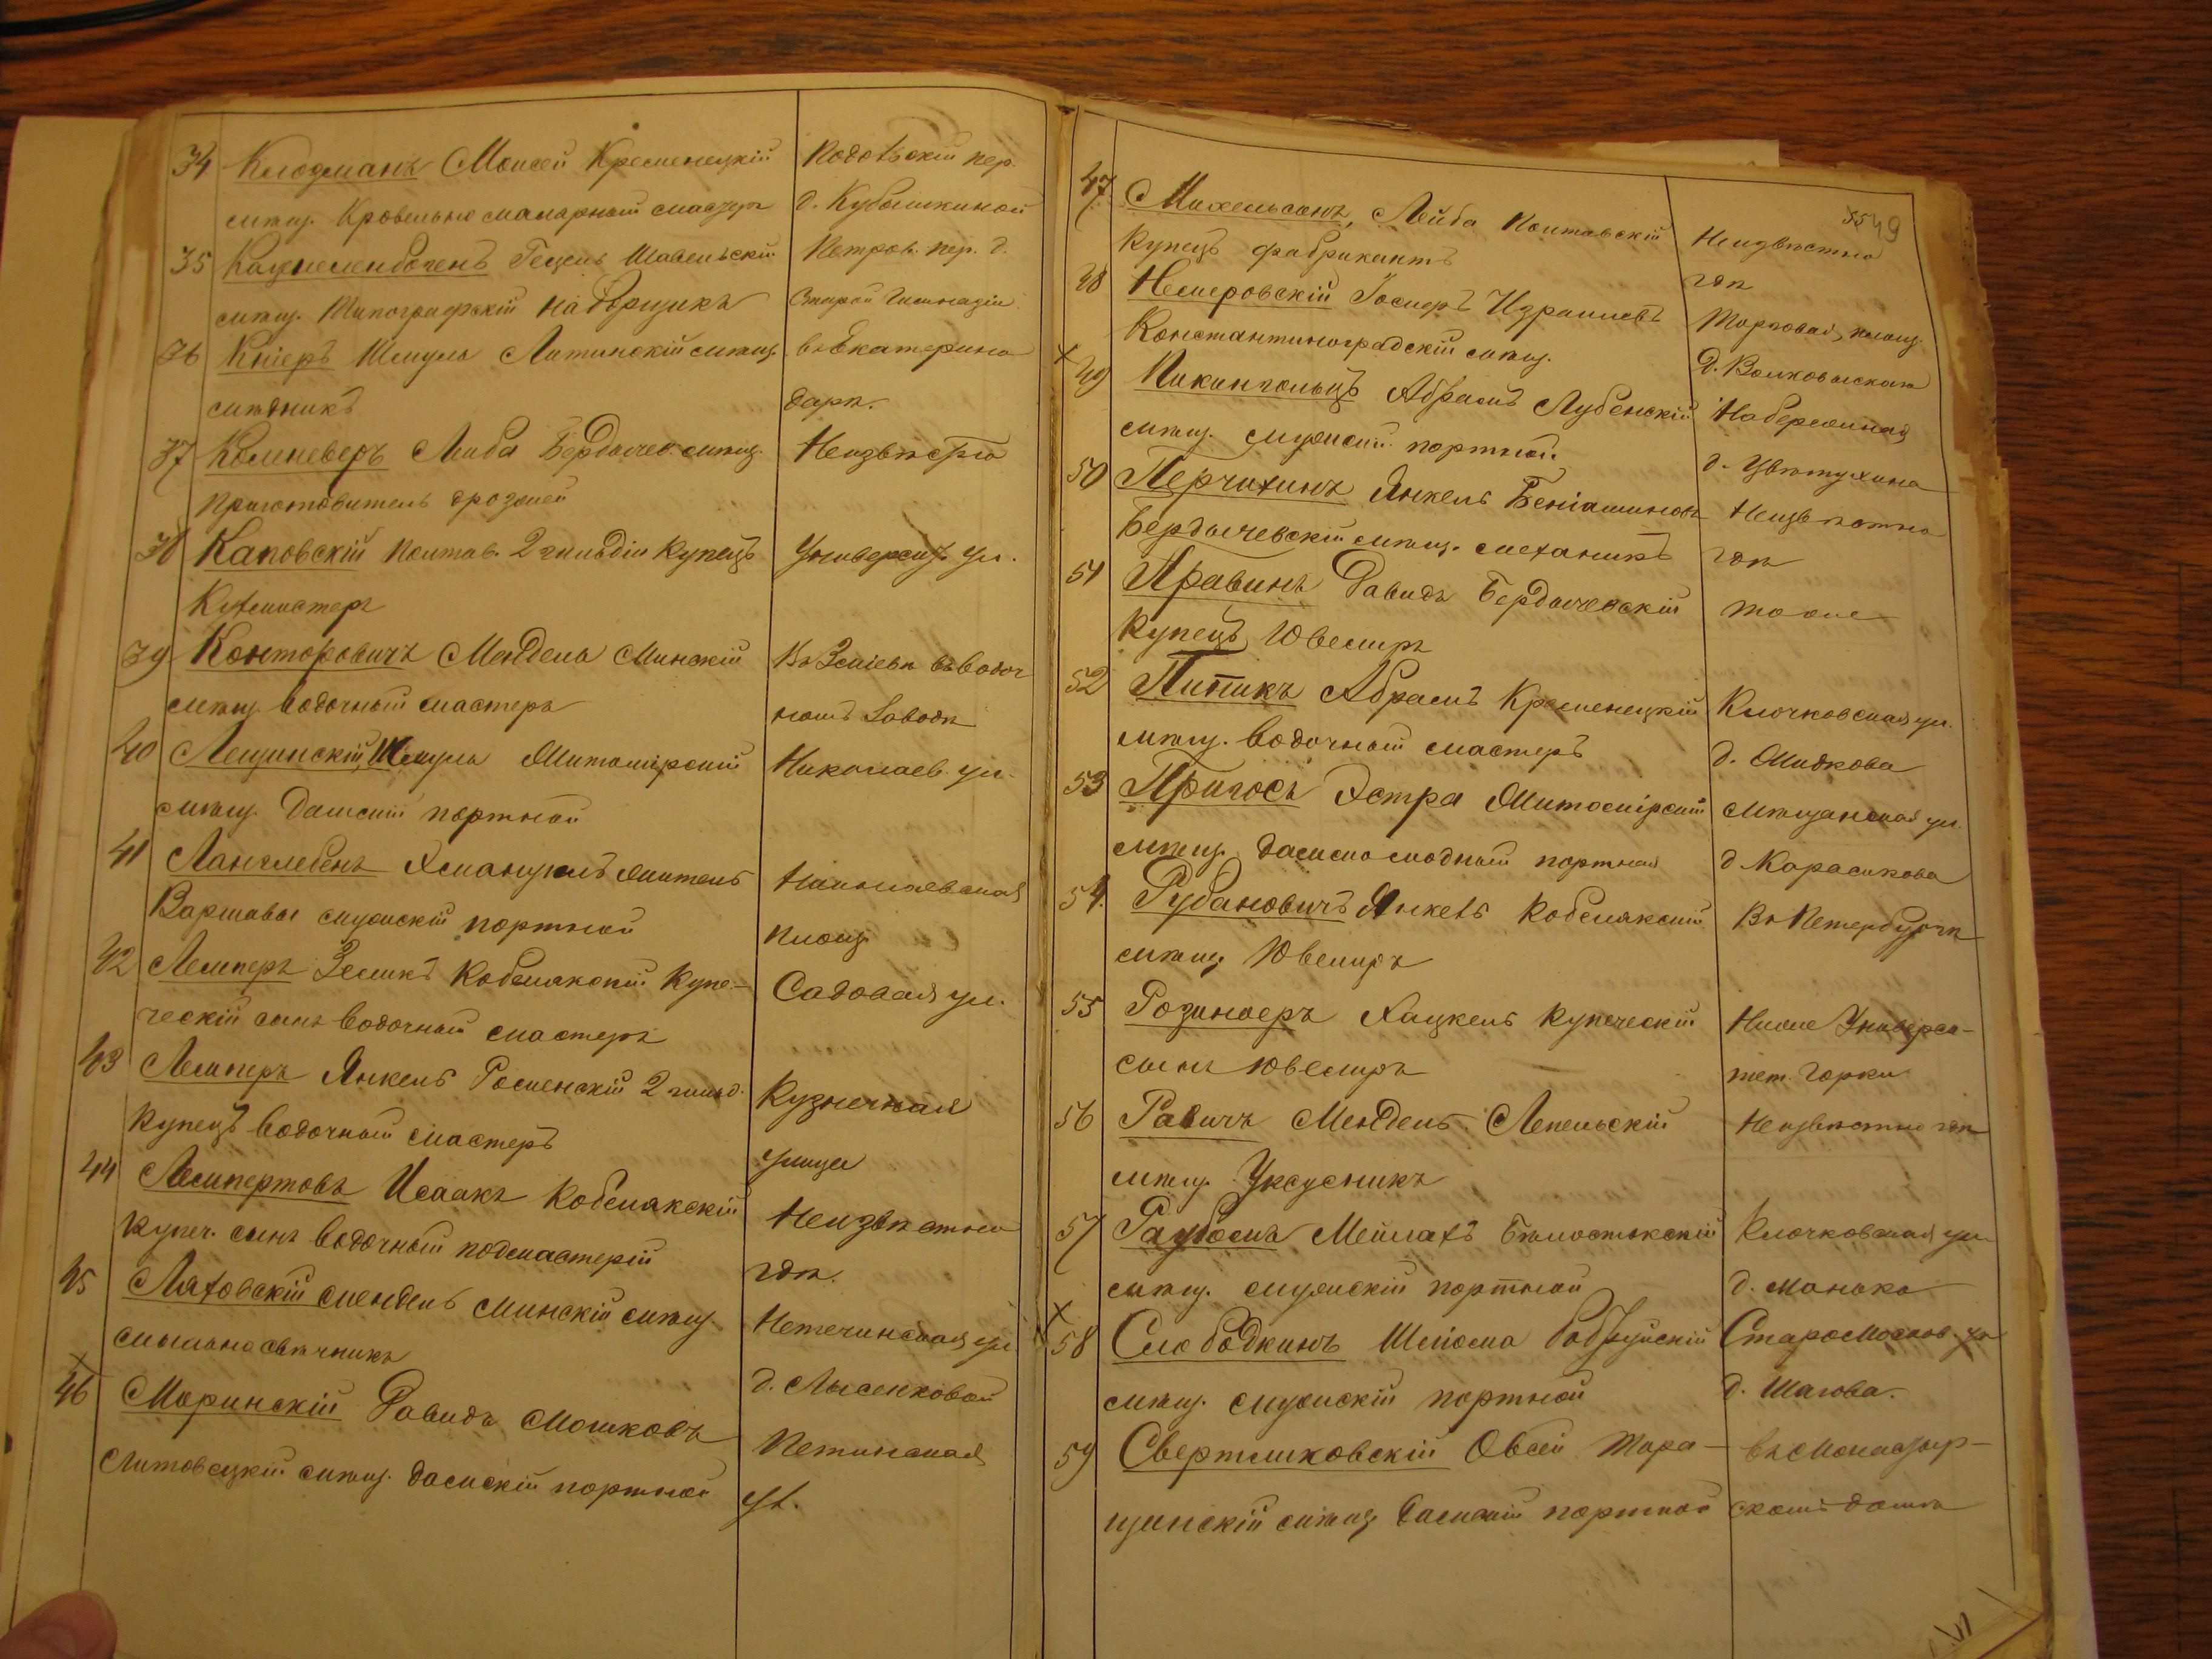 34 Клодманъ Моисей Кременецкій
мѣщ. Кровельно малярный мастеръ
Подольскій пер.
д. Кубышкиной
35 Каценеленбогенъ Гецель Шавельскій
мѣщ. Типографскій наборщикъ
Петров. пер. д.
Старой Гимназіи
36 Кніеръ Шмуль Литинскій мѣщ.
мѣдникъ
въ Екатерино
дарѣ.
37 Колшеверъ Лейба Бердичев. мѣщ.
приготовитель дрожжей
Неизвѣстно
38 Каповскій Полтав. 2 гильдіи Купецъ
Кухмистеръ
Университ. ул.
39 Конторовичъ Мендель Минскій
мѣщ. водочный мастеръ
Въ Зміевѣ въ водоч
номъ Заводѣ
40 Лещинскій, Шмуль Житомірскій
мѣщ. Дамскій портной
Николаев. ул.
41 Ланглебенъ Эмануилъ житель
Варшавы мужскій портной
Николаевская
площ.
42 Лемперъ Зеликъ Кобелякскій Купе-
ческій сынъ водочный мастеръ
Садовая ул.
43 Лемперъ Янкель Роменскій 2 гильд.
Купецъ водочный мастеръ
Кузнечная
улица
44 Лемпертовъ Исаакъ Кобелякскій
купеч. сынъ водочный подмастерій
Неизвѣстно
гдѣ.
45 Ляховскій Мендель Минскій мѣщ.
мыльно свѣчникъ
Нетечинская ул
д. Лысенковой
46 Маринскій Давидъ Мошковъ
Литовецкій мѣщ. дамскій портной
Петинская
ул.
49
47 Михельсонъ, Лейба Полтавскій
Купецъ фабрикантъ
Неизвѣстно
гдѣ
48 Немеровскій Іосифъ Израилевъ
Константиноградскій мѣщ.
Торговая площ.
д. Волковыскаго
49 Пикингольцъ Абрамъ Лубенскій
мѣщ. мужской портной
Набережная
д. Цвѣтухина
50 Перчихинъ Янкель Беніаминовъ
Бердичевскій мѣщ. механикъ
Неизвѣстно
гдѣ
51 Правинъ Давидъ Бердичевскій
Купецъ Ювелиръ
тоже
52 Пипикъ Абрамъ Кременецкій
мѣщ. водочный мастеръ
Клочковская ул.
д. Жидкова
53 Пригосъ Эстра Житомірскій
мѣщ. дамско модный портная
Мѣщанская ул.
д Карасикова
54. Рубановичъ Янкель Кобелякскій
мѣщ Ювелиръ
Въ Петербургѣ
55 Розинеръ Хацкель купеческій
сынъ Ювелиръ
Ниже Универси-
тет. Горки
56 Равичъ Мендель Лепельскій
мѣщ. Уксусникъ
Неизвѣстно гдѣ
57 Мейлахъ Бѣлостокскій
мѣщ. мужскій портной
Клочковская ул
д. Манько
58 Слободкинъ Шлиома Бобруйскій
мѣщ. мужскій портной
Старомосков. ул
д. Шагова.
59 Овсей Тара-
щинскій мѣщ дамскій портной
въ Монастыр-
скомъ домѣ